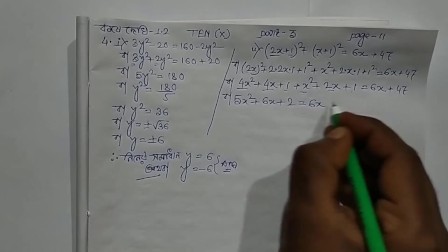 কষে দেখি-1.2 TEN (X) part-3 page-11
4. i) 3y²-20 = 160-2y²
বা 3y²+2y² = 160+20
বা 5y² = 180
বা y² = 180/5
বা y² = 36
বা y = ±√36
বা y = ±6
∴ নির্ণেয় সমাধান y = 6
অথবা y = -6 (Ans)
ii) (2x+1)² (x+1)² = 6x+47
বা (2x)²+2·2x·1+1²+x²+2·x·1+1² = 6x+47
বা 4x²+4x+1+x²+2x+1 = 6x+47
বা 5x²+6x+2 = 6x